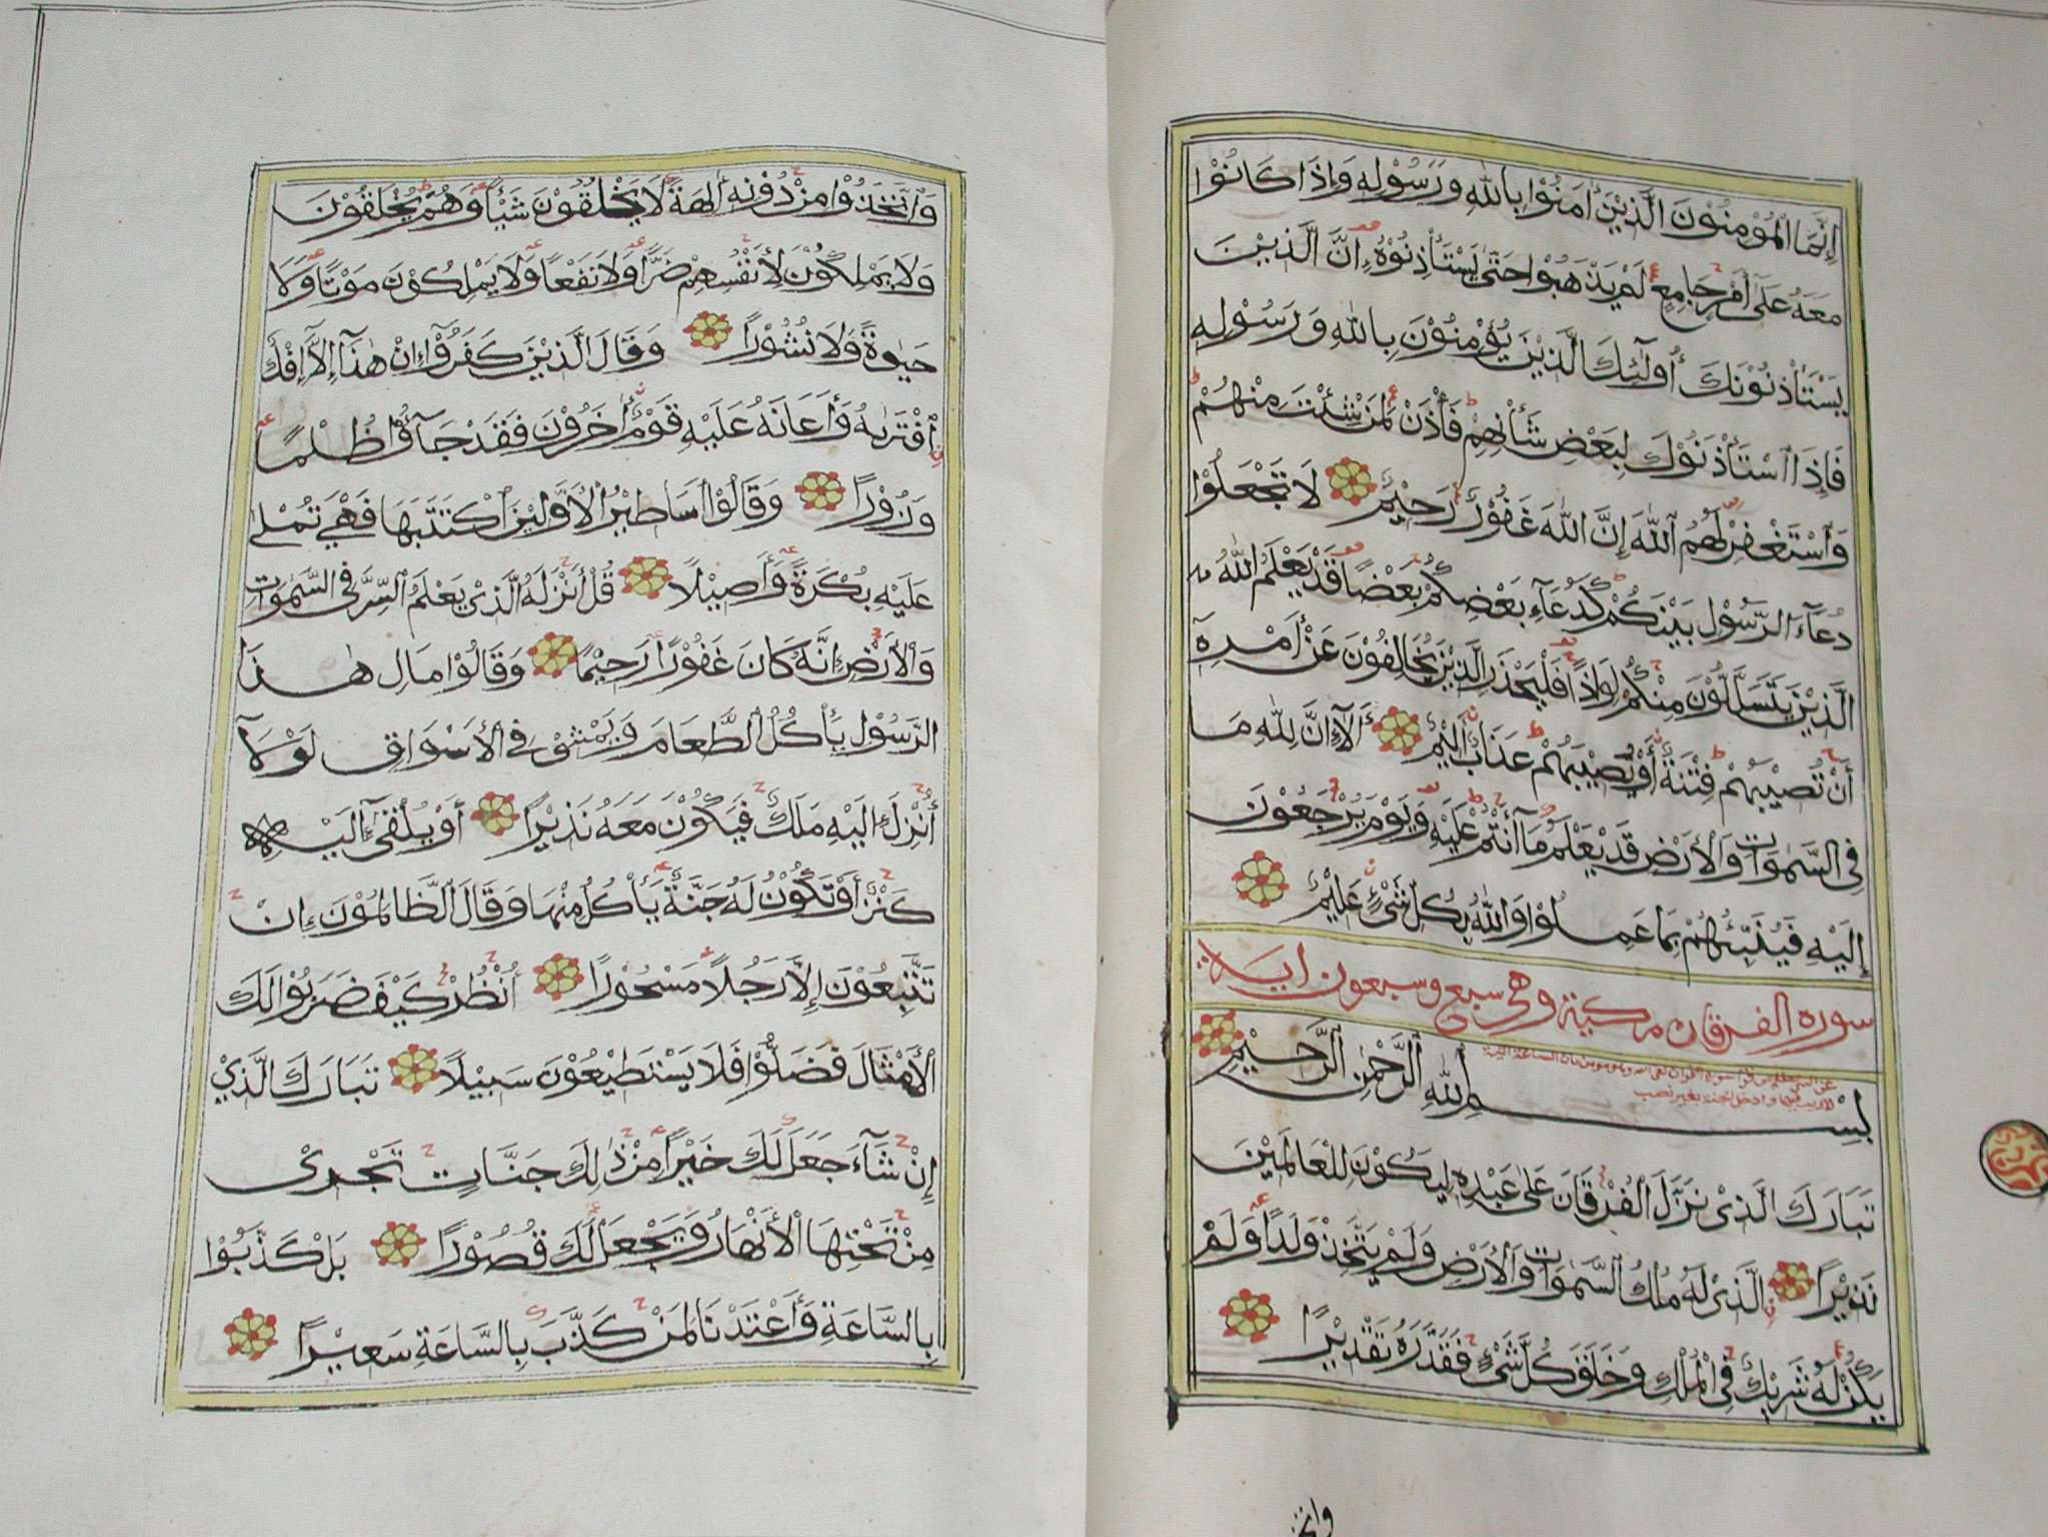 إِنَّمَا الْمُؤْمِنُوْنَ الَّذِيْنَ آمَنُوْا بِاللّٰهِ وَرَسُوْلِهِ وَإِذَا كَانُوْا
مَعَهُ عَلَىٰ أَمْرٍ جَامِعٍ لَمْ يَذْهَبُوْا حَتَّىٰ يَسْتَأْذِنُوْهُ إِنَّ الَّذِيْنَ
يَسْتَأْذِنُوْنَكَ أُولَٰئِكَ الَّذِيْنَ يُؤْمِنُوْنَ بِاللّٰهِ وَرَسُوْلِهِ
فَإِذَا اسْتَأْذَنُوْكَ لِبَعْضِ شَأْنِهِمْ فَأْذَنْ لِمَنْ شِئْتَ مِنْهُمْ
وَاسْتَغْفِرْ لَهُمُ اللّٰهَ إِنَّ اللّٰهَ غَفُوْرٌ رَحِيْمٌ لَا تَجْعَلُوْا
دُعَآءَ الرَّسُوْلِ بَيْنَكُمْ كَدُعَآءِ بَعْضِكُمْ بَعْضًا قَدْ يَعْلَمُ اللّٰهُ
الَّذِيْنَ يَتَسَلَّلُوْنَ مِنْكُمْ لِوَاذًا فَلْيَحْذَرِ الَّذِيْنَ يُخَالِفُوْنَ عَنْ أَمْرِهِ
أَنْ تُصِيْبَهُمْ فِتْنَةٌ أَوْ يُصِيْبَهُمْ عَذَابٌ أَلِيْمٌ أَلَآ إِنَّ لِلّٰهِ مَا
فِي السَّمٰوَاتِ وَالْأَرْضِ قَدْ يَعْلَمُ مَآ أَنْتُمْ عَلَيْهِ وَيَوْمَ يُرْجَعُوْنَ
إِلَيْهِ فَيُنَبِّئُهُمْ بِمَا عَمِلُوْا وَاللّٰهُ بِكُلِّ شَيْءٍ عَلِيْمٌ
سوره الفرقان مكية وهي سبع وسبعون اية
بِسْمِ اللّٰهِ الرَّحْمٰنِ الرَّحِيْمِ
تَبَارَكَ الَّذِيْ نَزَّلَ الْفُرْقَانَ عَلَىٰ عَبْدِهِ لِيَكُوْنَ لِلْعَالَمِيْنَ
نَذِيْرًا الَّذِيْ لَهُ مُلْكُ السَّمٰوَاتِ وَالْأَرْضِ وَلَمْ يَتَّخِذْ وَلَدًا وَلَمْ
يَكُنْ لَهُ شَرِيْكٌ فِي الْمُلْكِ وَخَلَقَ كُلَّ شَيْءٍ فَقَدَّرَهُ تَقْدِيْرًا
واتخ
وَاتَّخَذُوْا مِنْ دُوْنِهِ آلِهَةً لَا يَخْلُقُوْنَ شَيْئًا وَهُمْ يُخْلَقُوْنَ
وَلَا يَمْلِكُوْنَ لِأَنْفُسِهِمْ ضَرًّا وَلَا نَفْعًا وَلَا يَمْلِكُوْنَ مَوْتًا وَلَا
حَيٰوةً وَلَا نُشُوْرًا وَقَالَ الَّذِيْنَ كَفَرُوْا إِنْ هٰذَآ إِلَّآ إِفْكٌ
افْتَرٰىهُ وَأَعَانَهُ عَلَيْهِ قَوْمٌ آخَرُوْنَ فَقَدْ جَآءُوْا ظُلْمًا
وَزُوْرًا وَقَالُوْا أَسَاطِيْرُ الْأَوَّلِيْنَ اكْتَتَبَهَا فَهِيَ تُمْلَىٰ
عَلَيْهِ بُكْرَةً وَأَصِيْلًا قُلْ أَنْزَلَهُ الَّذِيْ يَعْلَمُ السِّرَّ فِي السَّمٰوَاتِ
وَالْأَرْضِ إِنَّهُ كَانَ غَفُوْرًا رَحِيْمًا وَقَالُوْا مَالِ هٰذَا
الرَّسُوْلِ يَأْكُلُ الطَّعَامَ وَيَمْشِيْ فِي الْأَسْوَاقِ لَوْلَآ
أُنْزِلَ إِلَيْهِ مَلَكٌ فَيَكُوْنَ مَعَهُ نَذِيْرًا أَوْ يُلْقَىٰٓ إِلَيْهِ
كَنْزٌ أَوْ تَكُوْنُ لَهُ جَنَّةٌ يَأْكُلُ مِنْهَا وَقَالَ الظَّالِمُوْنَ إِنْ
تَتَّبِعُوْنَ إِلَّا رَجُلًا مَسْحُوْرًا أُنْظُرْ كَيْفَ ضَرَبُوْا لَكَ
الْأَمْثَالَ فَضَلُّوْا فَلَا يَسْتَطِيْعُوْنَ سَبِيْلًا تَبَارَكَ الَّذِيْ
إِنْ شَآءَ جَعَلَ لَكَ خَيْرًا مِنْ ذٰلِكَ جَنَّاتٍ تَجْرِيْ
مِنْ تَحْتِهَا الْأَنْهَارُ وَيَجْعَلْ لَكَ قُصُوْرًا بَلْ كَذَّبُوْا
بِالسَّاعَةِ وَأَعْتَدْنَا لِمَنْ كَذَّبَ بِالسَّاعَةِ سَعِيْرًا